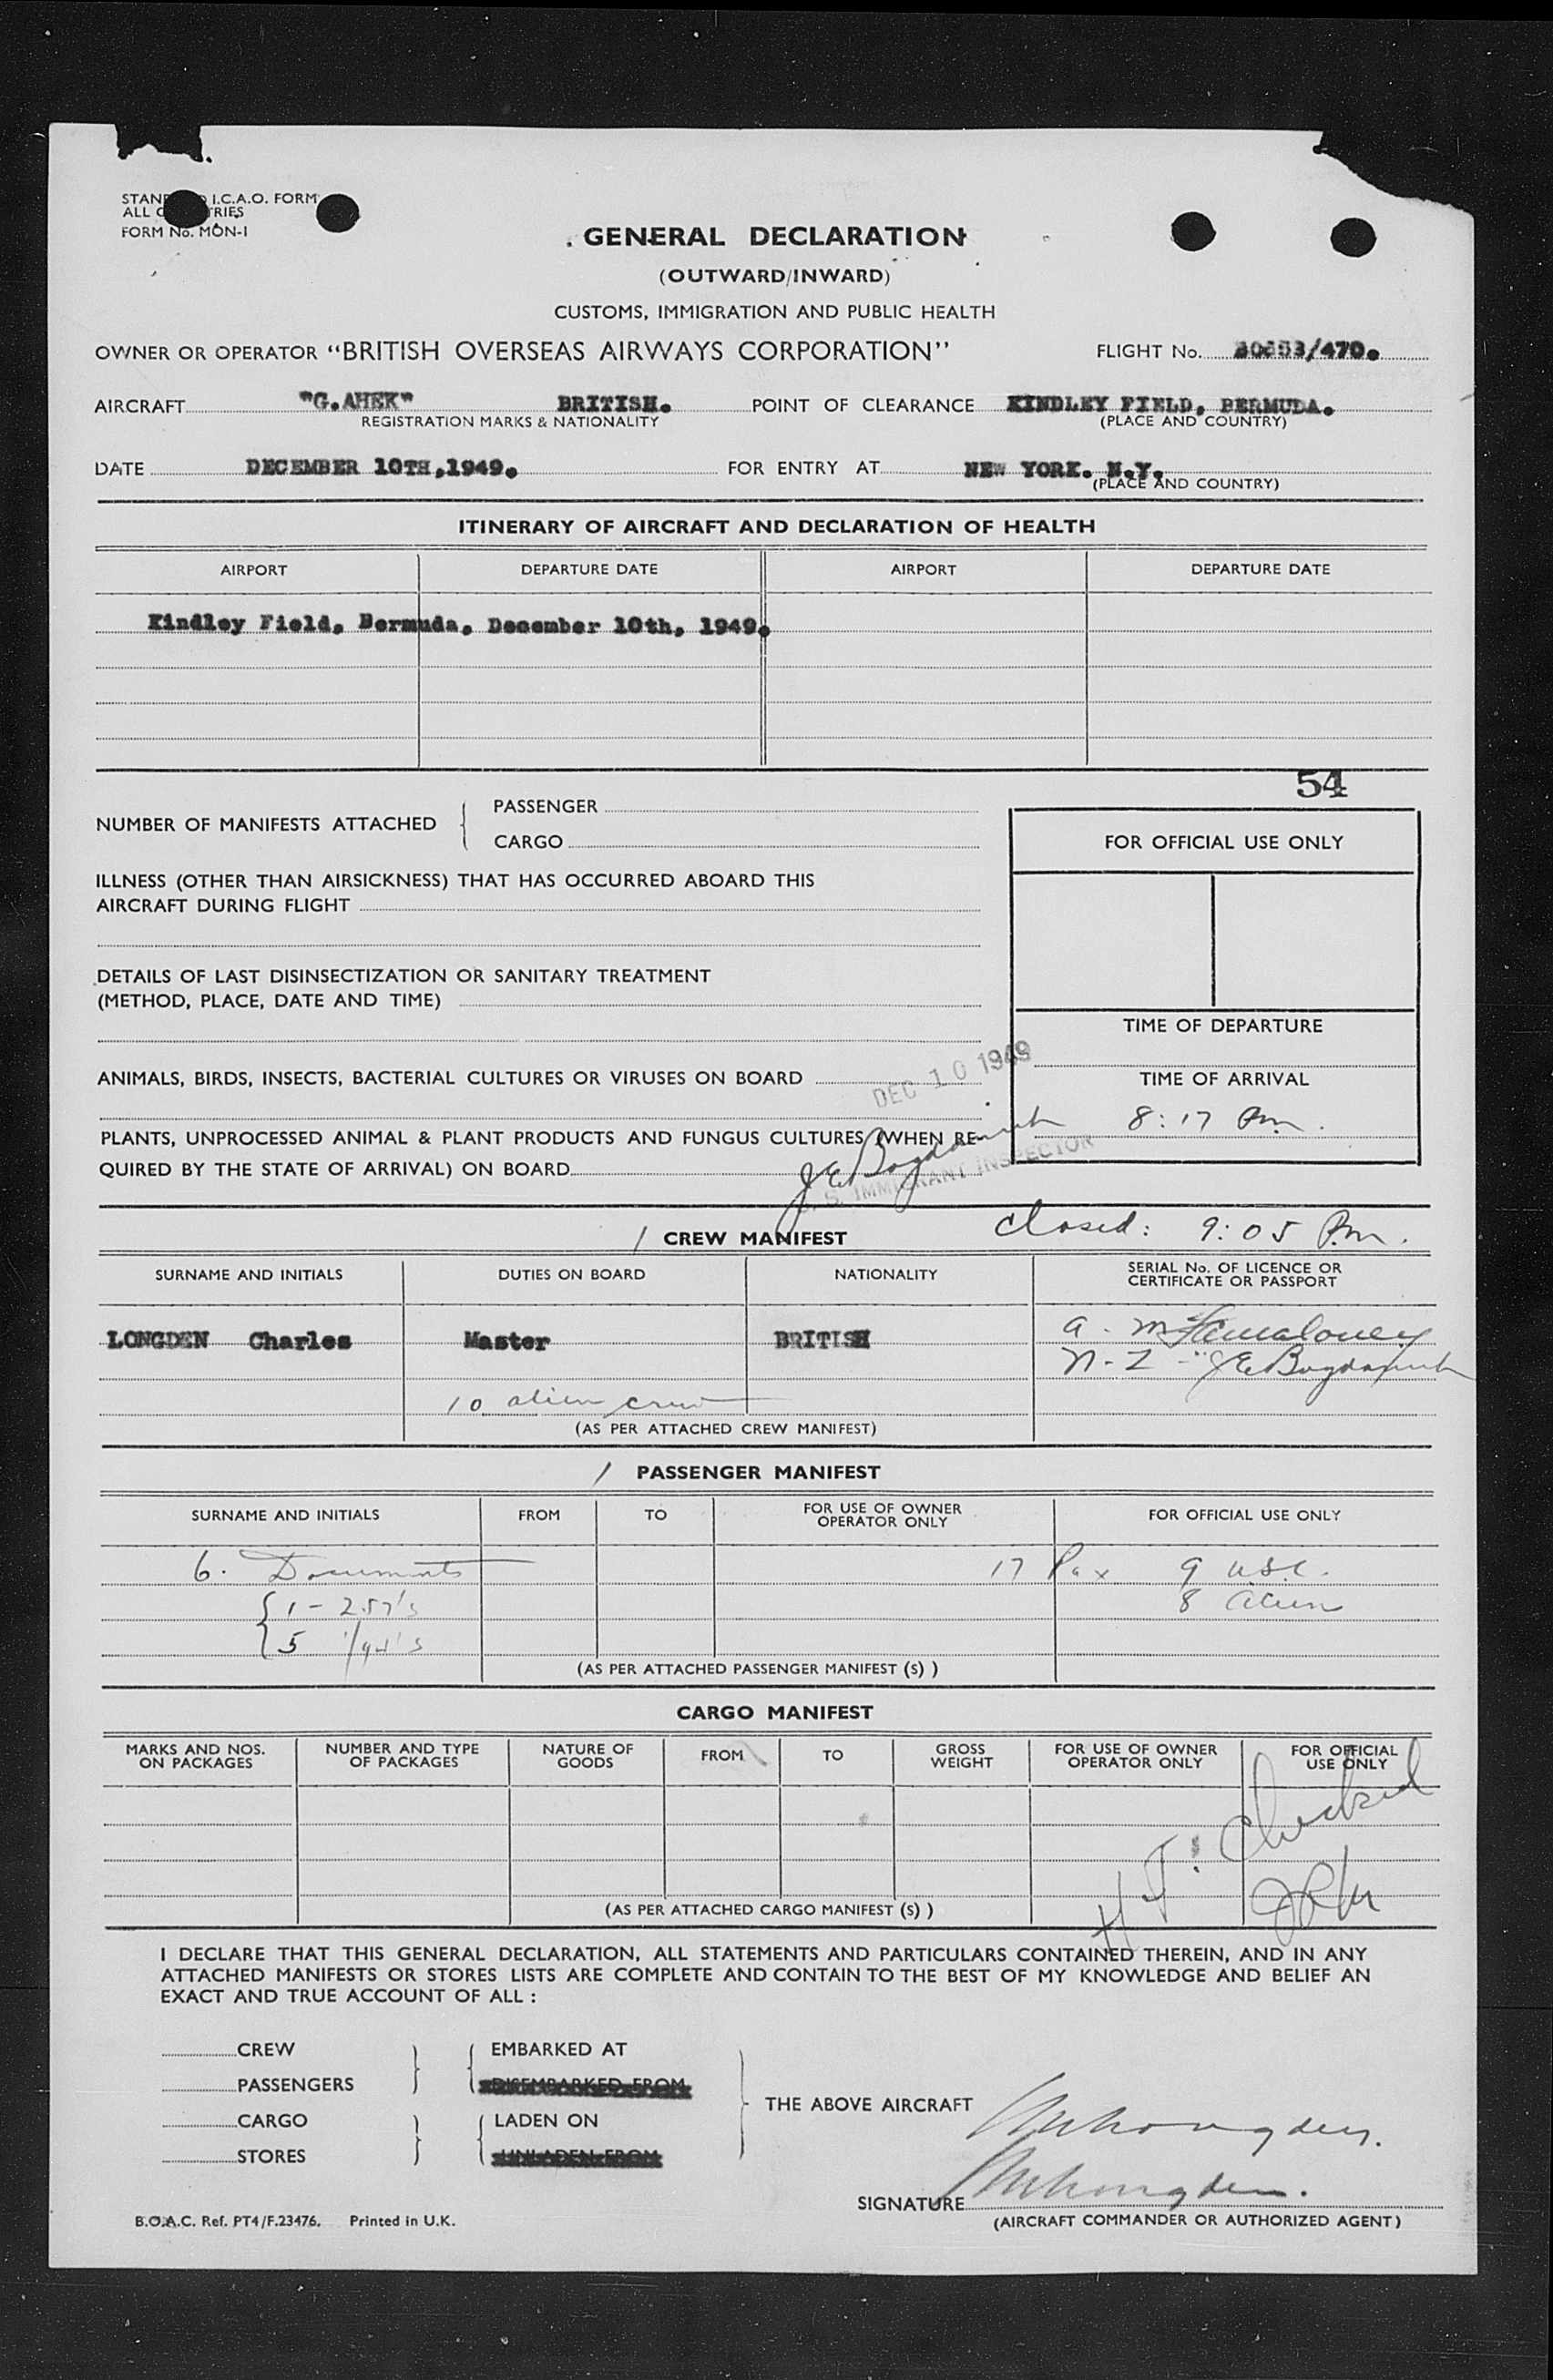 I.C.A.O. FORM
ALL
FORM No. MON-1
GENERAL DECLARATION
(OUTWARD/INWARD)
CUSTOMS, IMMIGRATION AND PUBLIC HEALTH
OWNER OR OPERATOR "BRITISH OVERSEAS AIRWAYS CORPORATION" FLIGHT No. /470.
AIRCRAFT "G.AHEK" BRITISH. POINT OF CLEARANCE KINDLEY FIELD, BERMUDA.
REGISTRATION MARKS & NATIONALITY (PLACE AND COUNTRY)
DATE DECEMBER 10TH,1949. FOR ENTRY AT NEW YORK. N.Y.
(PLACE AND COUNTRY)
ITINERARY OF AIRCRAFT AND DECLARATION OF HEALTH
AIRPORT DEPARTURE DATE AIRPORT DEPARTURE DATE
Kindley Field, Bermuda, December 10th, 1949.
54
NUMBER OF MANIFESTS ATTACHED { PASSENGER
CARGO
FOR OFFICIAL USE ONLY
ILLNESS (OTHER THAN AIRSICKNESS) THAT HAS OCCURRED ABOARD THIS
AIRCRAFT DURING FLIGHT
DETAILS OF LAST DISINSECTIZATION OR SANITARY TREATMENT
(METHOD, PLACE, DATE AND TIME)
TIME OF DEPARTURE
DEC 10 1949
ANIMALS, BIRDS, INSECTS, BACTERIAL CULTURES OR VIRUSES ON BOARD
TIME OF ARRIVAL
8:17 Pm.
PLANTS, UNPROCESSED ANIMAL & PLANT PRODUCTS AND FUNGUS CULTURES (WHEN RE-
QUIRED BY THE STATE OF ARRIVAL) ON BOARD
U. S. IMMIGRANT INSPECTOR
closed: 9:05 Pm.
/ CREW MANIFEST
SURNAME AND INITIALS DUTIES ON BOARD NATIONALITY SERIAL No. OF LICENCE OR
CERTIFICATE OR PASSPORT
LONGDEN Charles Master BRITISH
10 alien crew
(AS PER ATTACHED CREW MANIFEST)
/ PASSENGER MANIFEST
SURNAME AND INITIALS FROM TO FOR USE OF OWNER
OPERATOR ONLY FOR OFFICIAL USE ONLY
6. Documents 17 Pax 9 USC.
{ 1 - 257's 8 alien
5
(AS PER ATTACHED PASSENGER MANIFEST (S) )
CARGO MANIFEST
MARKS AND NOS.
ON PACKAGES NUMBER AND TYPE
OF PACKAGES NATURE OF
GOODS FROM TO GROSS
WEIGHT FOR USE OF OWNER
OPERATOR ONLY FOR OFFICIAL
USE ONLY
Checked
(AS PER ATTACHED CARGO MANIFEST (S) )
I DECLARE THAT THIS GENERAL DECLARATION, ALL STATEMENTS AND PARTICULARS CONTAINED THEREIN, AND IN ANY
ATTACHED MANIFESTS OR STORES LISTS ARE COMPLETE AND CONTAIN TO THE BEST OF MY KNOWLEDGE AND BELIEF AN
EXACT AND TRUE ACCOUNT OF ALL :
CREW EMBARKED AT
PASSENGERS DISEMBARKED FROM
THE ABOVE AIRCRAFT
CARGO LADEN ON
STORES UNLADEN FROM
SIGNATURE
(AIRCRAFT COMMANDER OR AUTHORIZED AGENT)
B.O.A.C. Ref. PT4/F.23476. Printed in U.K.